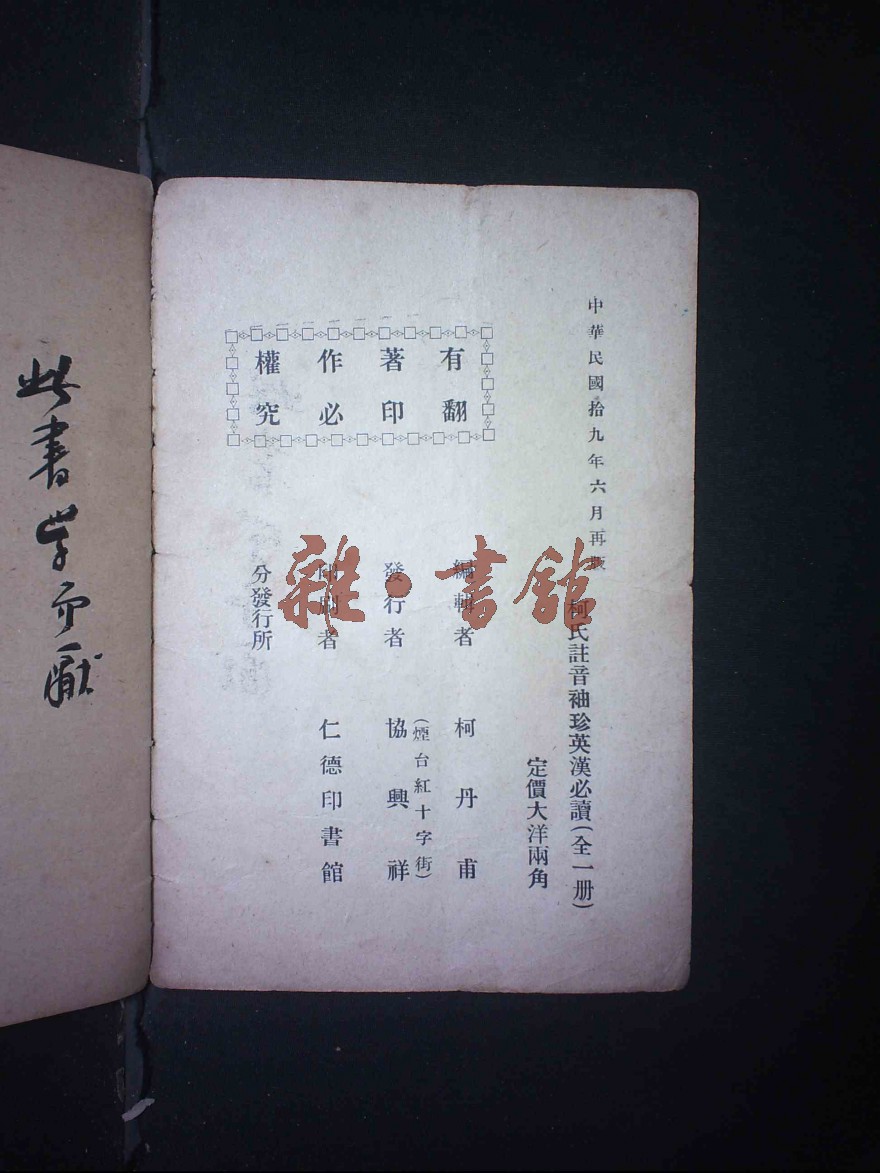 中華民國拾九年六月再版
柯氏註音袖珍英漢必讀(全一册)
定價大洋兩角
有著作權
翻印必究
編輯者 柯丹甫
發行者 協興祥
(煙台紅十字街)
印刷者 仁德印書館
分發行所
雜·書館
此書字而獻